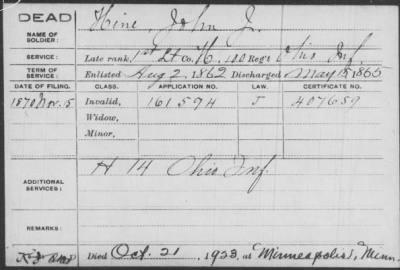 DEAD
NAME OF SOLDIER: Hine, John J.
SERVICE: Late rank, 1st Lt Co. H, 100 Reg't Ohio Inf.
TERM OF SERVICE: Enlisted Aug 2, 1862 Discharged May 15, 1865
DATE OF FILING. CLASS. APPLICATION NO. LAW. CERTIFICATE NO.
1870 Nov. 15 Invalid, 161594 J 407659
Widow,
Minor,
ADDITIONAL SERVICES: H 14 Ohio Inf.
REMARKS:
Died Oct. 21, 1923, at Minneapolis, Minn.